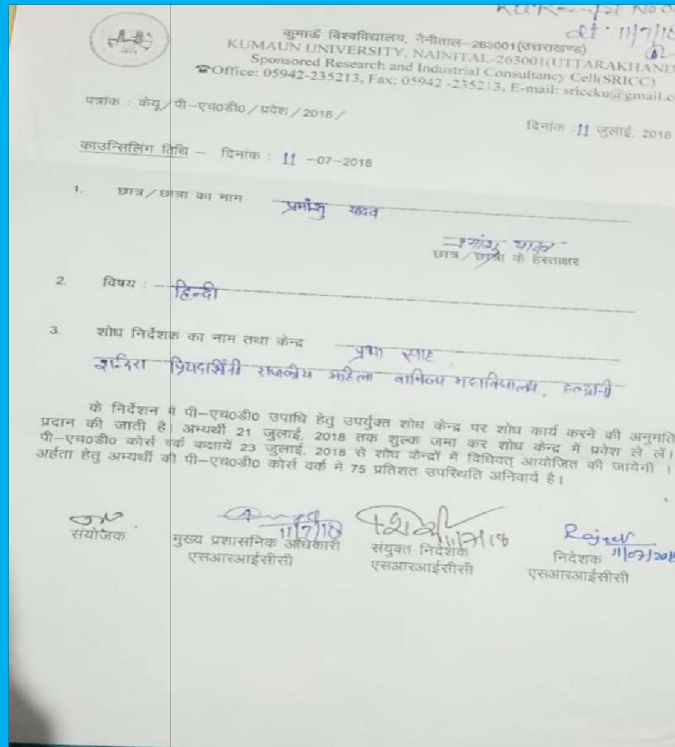 dt. 11/7/18
कुमाऊँ विश्वविद्यालय, नैनीताल-263001(उत्तराखण्ड)
KUMAUN UNIVERSITY, NAINITAL-263001(UTTARAKHAND)
Sponsored Research and Industrial Consultancy Cell(SRICC)
☎Office: 05942-235213, Fax: 05942-235213, E-mail: sriccku@gmail.c
पत्रांक : केयू/पी-एच0डी0/प्रवेश/2018/
दिनांक :11 जुलाई, 2018
काउन्सिलिंग तिथि – दिनांक : 11 -07-2018
1. छात्र/छात्रा का नाम यादव
यादव
छात्र/छात्रा के हस्ताक्षर
2. विषय : हिन्दी
3. शोध निर्देशक का नाम तथा केन्द्र प्रभा साह
प्रियदर्शिनी राजकीय महिला वाणिज्य महाविद्यालय, हल्द्वानी
के निर्देशन में पी-एच0डी0 उपाधि हेतु उपर्युक्त शोध केन्द्र पर शोध कार्य करने की अनुमति
प्रदान की जाती है। अभ्यर्थी 21 जुलाई, 2018 तक शुल्क जमा कर शोध केन्द्र में प्रवेश ले लें।
पी-एच0डी0 कोर्स वर्क कक्षायें 23 जुलाई, 2018 से शोध केन्द्रों में विधिवत् आयोजित की जायेगी ।
अर्हता हेतु अभ्यर्थी की पी-एच0डी0 कोर्स वर्क में 75 प्रतिशत उपस्थिति अनिवार्य है।
11/7/18 11/7/18 Rajeev 11/07/2018
संयोजक मुख्य प्रशासनिक अधिकारी संयुक्त निदेशक निदेशक
एसआरआईसीसी एसआरआईसीसी एसआरआईसीसी